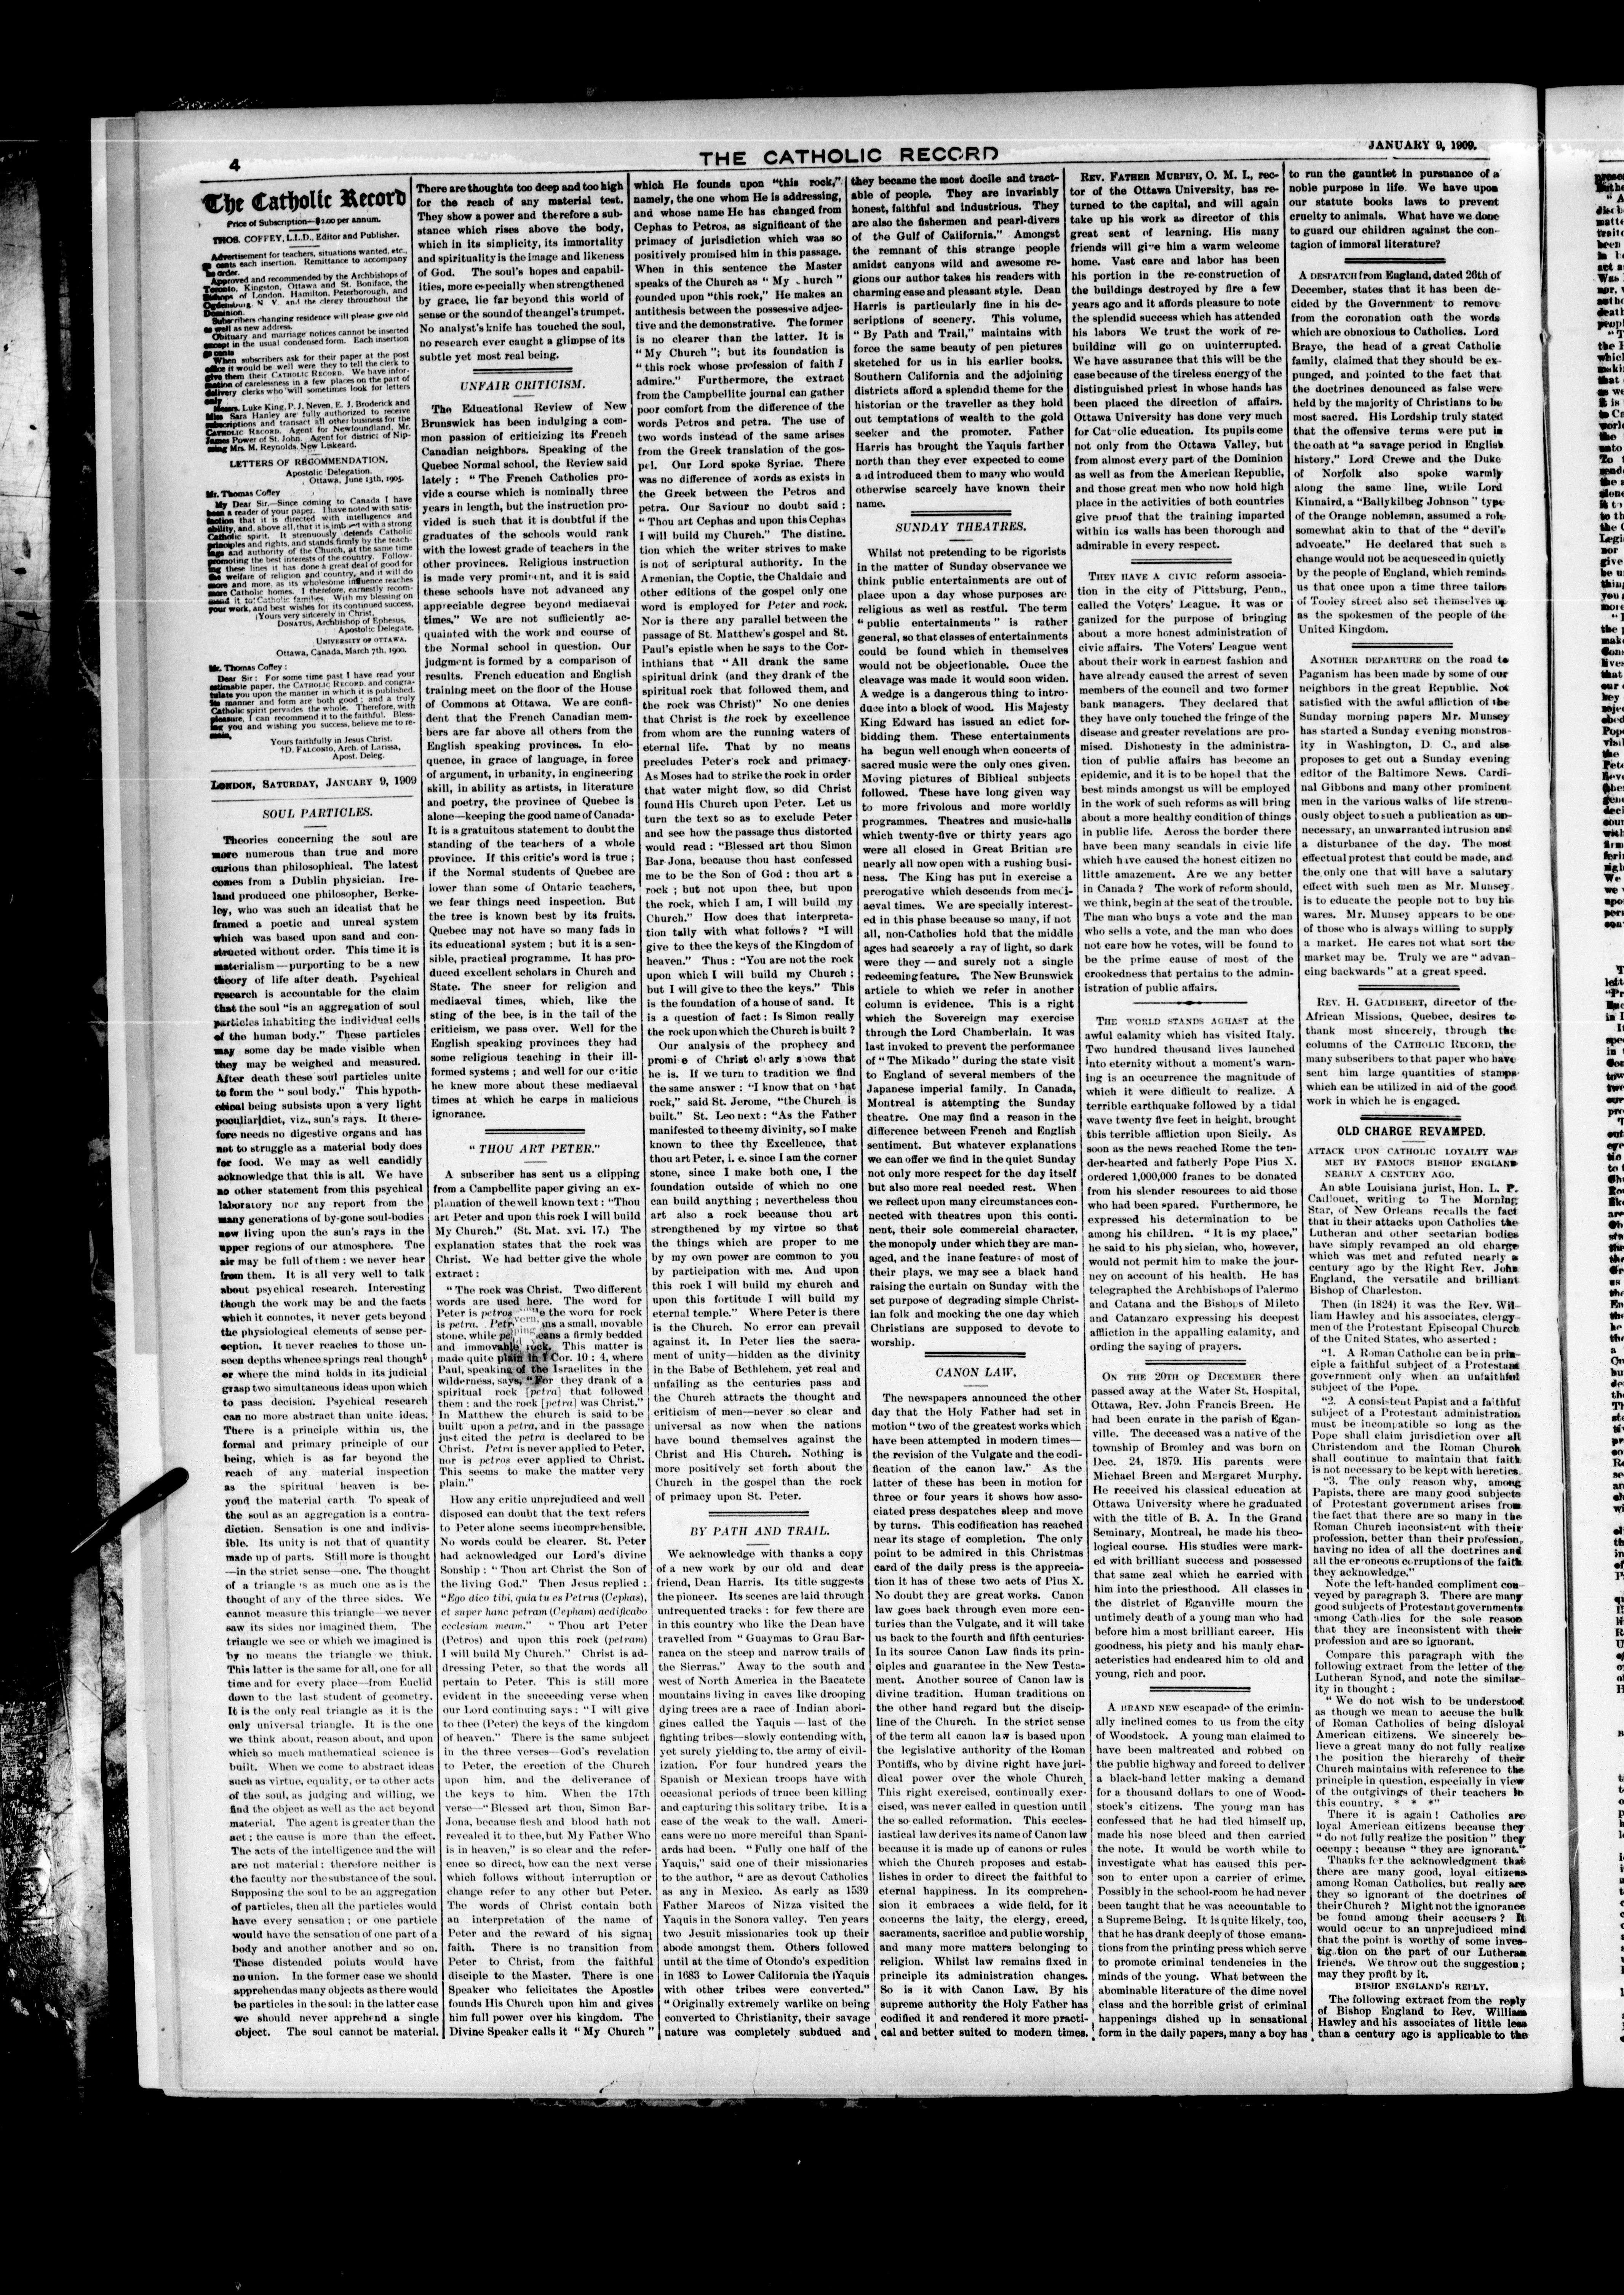 4
THE CATHOLIC RECORD
JANUARY 9, 1909.
The Catholic Record
Price of Subscription—$2.00 per annum.
THOS. COFFEY, L.L.D., Editor and Publisher.
Advertisement for teachers, situations wanted, etc.
cents each insertion. Remittance to accompany
the order.
Approved and recommended by the Archbishops of
Toronto, Kingston, Ottawa and St. Boniface, the
Bishops of London, Hamilton, Peterborough, and
Ogdensburg, N Y. and the clergy throughout the
Dominion.
Subscribers changing residence will please give old
as well as new address.
Obituary and marriage notices cannot be inserted
except in the usual condensed form. Each insertion
cents
When subscribers ask for their paper at the post
office it would be well were they to tell the clerk to
give them their CATHOLIC RECORD. We have infor-
mation of carelessness in a few places on the part of
delivery clerks who will sometimes look for letters
only
Messrs. Luke King, P. J. Neven, E. J. Broderick and
Miss Sara Hanley are fully authorized to receive
subscriptions and transact all other business for the
CATHOLIC RECORD. Agent for Newfoundland, Mr.
James Power of St. John. Agent for district of Nip-
issing Mrs. M. Reynolds, New Liskeard.
LETTERS OF RECOMMENDATION.
Apostolic Delegation.
Ottawa, June 13th, 1905.
Mr. Thomas Coffey
My Dear Sir.—Since coming to Canada I have
been a reader of your paper. I have noted with satis-
faction that it is directed with intelligence and
ability, and, above all, that it is imbued with a strong
Catholic spirit. It strenuously defends Catholic
principles and rights, and stands firmly by the teach-
ings and authority of the Church, at the same time
promoting the best interests of the country. Follow-
ing these lines it has done a great deal of good for
the welfare of religion and country, and it will do
more and more, as its wholesome influence reaches
more Catholic homes. I therefore, earnestly recom-
mend it to Catholic families. With my blessing on
your work, and best wishes for its continued success,
Yours very sincerely in Christ,
DONATUS, Archbishop of Ephesus,
Apostolic Delegate.
UNIVERSITY OF OTTAWA.
Ottawa, Canada, March 7th, 1900.
Mr. Thomas Coffey :
Dear Sir : For some time past I have read your
estimable paper, the CATHOLIC RECORD, and congra-
tulate you upon the manner in which it is published.
Its manner and form are both good ; and a truly
Catholic spirit pervades the whole. Therefore, with
pleasure, I can recommend it to the faithful. Bless-
ing you and wishing you success, believe me to re-
main,
Yours faithfully in Jesus Christ.
†D. FALCONIO, Arch. of Larissa,
Apost. Deleg.
LONDON, SATURDAY, JANUARY 9, 1909
SOUL PARTICLES.
Theories concerning the soul are
more numerous than true and more
curious than philosophical. The latest
comes from a Dublin physician. Ire-
land produced one philosopher, Berke-
ley, who was such an idealist that he
framed a poetic and unreal system
which was based upon sand and con-
structed without order. This time it is
materialism—purporting to be a new
theory of life after death. Psychical
research is accountable for the claim
that the soul "is an aggregation of soul
particles inhabiting the individual cells
of the human body." These particles
may some day be made visible when
they may be weighed and measured.
After death these soul particles unite
to form the " soul body." This hypoth-
etical being subsists upon a very light
peculiar diet, viz., sun's rays. It there-
fore needs no digestive organs and has
not to struggle as a material body does
for food. We may as well candidly
acknowledge that this is all. We have
no other statement from this psychical
laboratory nor any report from the
many generations of by-gone soul-bodies
now living upon the sun's rays in the
upper regions of our atmosphere. The
air may be full of them : we never hear
from them. It is all very well to talk
about psychical research. Interesting
though the work may be and the facts
which it connotes, it never gets beyond
the physiological elements of sense per-
ception. It never reaches to those un-
seen depths whence springs real thought
or where the mind holds in its judicial
grasp two simultaneous ideas upon which
to pass decision. Psychical research
can no more abstract than unite ideas.
There is a principle within us, the
formal and primary principle of our
being, which is as far beyond the
reach of any material inspection
as the spiritual heaven is be-
yond the material earth To speak of
the soul as an aggregation is a contra-
diction. Sensation is one and indivis-
ible. Its unity is not that of quantity
made up of parts. Still more is thought
—in the strict sense—one. The thought
of a triangle 's as much one as is the
thought of any of the three sides. We
cannot measure this triangle—we never
saw its sides nor imagined them. The
triangle we see or which we imagined is
by no means the triangle we think.
This latter is the same for all, one for all
time and for every place—from Euclid
down to the last student of geometry.
It is the only real triangle as it is the
only universal triangle. It is the one
we think about, reason about, and upon
which so much mathematical science is
built. When we come to abstract ideas
such as virtue, equality, or to other acts
of the soul, as judging and willing, we
find the object as well as the act beyond
material. The agent is greater than the
act : the cause is more than the effect.
The acts of the intelligence and the will
are not material : therefore neither is
the faculty nor the substance of the soul.
Supposing the soul to be an aggregation
of particles, then all the particles would
have every sensation ; or one particle
would have the sensation of one part of a
body and another another and so on.
These distended points would have
no union. In the former case we should
apprehend as many objects as there would
be particles in the soul: in the latter case
we should never apprehend a single
object. The soul cannot be material.
There are thoughts too deep and too high
for the reach of any material test.
They show a power and therefore a sub-
stance which rises above the body,
which in its simplicity, its immortality
and spirituality is the image and likeness
of God. The soul's hopes and capabil-
ities, more especially when strengthened
by grace, lie far beyond this world of
sense or the sound of the angel's trumpet.
No analyst's knife has touched the soul,
no research ever caught a glimpse of its
subtle yet most real being.
UNFAIR CRITICISM.
The Educational Review of New
Brunswick has been indulging a com-
mon passion of criticizing its French
Canadian neighbors. Speaking of the
Quebec Normal school, the Review said
lately : " The French Catholics pro-
vide a course which is nominally three
years in length, but the instruction pro-
vided is such that it is doubtful if the
graduates of the schools would rank
with the lowest grade of teachers in the
other provinces. Religious instruction
is made very prominent, and it is said
these schools have not advanced any
appreciable degree beyond mediaeval
times." We are not sufficiently ac-
quainted with the work and course of
the Normal school in question. Our
judgment is formed by a comparison of
results. French education and English
training meet on the floor of the House
of Commons at Ottawa. We are confi-
dent that the French Canadian mem-
bers are far above all others from the
English speaking provinces. In elo-
quence, in grace of language, in force
of argument, in urbanity, in engineering
skill, in ability as artists, in literature
and poetry, the province of Quebec is
alone—keeping the good name of Canada.
It is a gratuitous statement to doubt the
standing of the teachers of a whole
province. If this critic's word is true ;
if the Normal students of Quebec are
lower than some of Ontario teachers,
we fear things need inspection. But
the tree is known best by its fruits.
Quebec may not have so many fads in
its educational system ; but it is a sen-
sible, practical programme. It has pro-
duced excellent scholars in Church and
State. The sneer for religion and
mediaeval times, which, like the
sting of the bee, is in the tail of the
criticism, we pass over. Well for the
English speaking provinces they had
some religious teaching in their ill-
formed systems ; and well for our critic
he knew more about these mediaeval
times at which he carps in malicious
ignorance.
" THOU ART PETER."
A subscriber has sent us a clipping
from a Campbellite paper giving an ex-
planation of the well known text : "Thou
art Peter and upon this rock I will build
My Church." (St. Mat. xvi. 17.) The
explanation states that the rock was
Christ. We had better give the whole
extract :
"The rock was Christ. Two different
words are used here. The word for
Peter is petros the word for rock
is petra. a small, movable
stone, while means a firmly bedded
and immovable rock. This matter is
made quite plain in 1 Cor. 10 : 4, where
Paul, speaking of the Israelites in the
wilderness, says, "For they drank of a
spiritual rock [petra] that followed
them : and the rock [petra] was Christ."
In Matthew the church is said to be
built upon a petra, and in the passage
just cited the petra is declared to be
Christ. Petra is never applied to Peter,
nor is petros ever applied to Christ.
This seems to make the matter very
plain."
How any critic unprejudiced and well
disposed can doubt that the text refers
to Peter alone seems incomprehensible.
No words could be clearer. St. Peter
had acknowledged our Lord's divine
Sonship : " Thou art Christ the Son of
the living God." Then Jesus replied :
"Ego dico tibi, quia tu es Petrus (Cephas),
et super hanc petram (Cepham) aedificabo
ecclesiam meam." " Thou art Peter
(Petros) and upon this rock (petram)
I will build My Church." Christ is ad-
dressing Peter, so that the words all
pertain to Peter. This is still more
evident in the succeeding verse when
our Lord continuing says : "I will give
to thee (Peter) the keys of the kingdom
of heaven." There is the same subject
in the three verses—God's revelation
to Peter, the erection of the Church
upon him, and the deliverance of
the keys to him. When the 17th
verse—"Blessed art thou, Simon Bar-
Jona, because flesh and blood hath not
revealed it to thee, but My Father Who
is in heaven," is so clear and the refer-
ence so direct, how can the next verse
which follows without interruption or
change refer to any other but Peter.
The words of Christ contain both
an interpretation of the name of
Peter and the reward of his signal
faith. There is no transition from
Peter to Christ, from the faithful
disciple to the Master. There is one
Speaker who felicitates the Apostle
founds His Church upon him and gives
him full power over his kingdom. The
Divine Speaker calls it " My Church "
which He founds upon "this rock,"
namely, the one whom He is addressing,
and whose name He has changed from
Cephas to Petros, as significant of the
primacy of jurisdiction which was so
positively promised him in this passage.
When in this sentence the Master
speaks of the Church as " My hurch "
founded upon "this rock," He makes an
antithesis between the possessive adjec-
tive and the demonstrative. The former
is no clearer than the latter. It is
" My Church "; but its foundation is
" this rock whose profession of faith I
admire." Furthermore, the extract
from the Campbellite journal can gather
poor comfort from the difference of the
words Petros and petra. The use of
two words instead of the same arises
from the Greek translation of the gos-
pel. Our Lord spoke Syriac. There
was no difference of words as exists in
the Greek between the Petros and
petra. Our Saviour no doubt said :
" Thou art Cephas and upon this Cephas
I will build my Church." The distinc-
tion which the writer strives to make
is not of scriptural authority. In the
Armenian, the Coptic, the Chaldaic and
other editions of the gospel only one
word is employed for Peter and rock.
Nor is there any parallel between the
passage of St. Matthew's gospel and St.
Paul's epistle when he says to the Cor-
inthians that "All drank the same
spiritual drink (and they drank of the
spiritual rock that followed them, and
the rock was Christ)" No one denies
that Christ is the rock by excellence
from whom are the running waters of
eternal life. That by no means
precludes Peter's rock and primacy.
As Moses had to strike the rock in order
that water might flow, so did Christ
found His Church upon Peter. Let us
turn the text so as to exclude Peter
and see how the passage thus distorted
would read : "Blessed art thou Simon
Bar Jona, because thou hast confessed
me to be the Son of God : thou art a
rock ; but not upon thee, but upon
the rock, which I am, I will build my
Church." How does that interpreta-
tion tally with what follows ? "I will
give to thee the keys of the Kingdom of
heaven." Thus : "You are not the rock
upon which I will build my Church ;
but I will give to thee the keys." This
is the foundation of a house of sand. It
is a question of fact : Is Simon really
the rock upon which the Church is built ?
Our analysis of the prophecy and
promise of Christ clearly shows that
he is. If we turn to tradition we find
the same answer : "I know that on that
rock," said St. Jerome, "the Church is
built." St. Leo next : "As the Father
manifested to thee my divinity, so I make
known to thee thy Excellence, that
thou art Peter, i. e. since I am the corner
stone, since I make both one, I the
foundation outside of which no one
can build anything ; nevertheless thou
art also a rock because thou art
strengthened by my virtue so that
the things which are proper to me
by my own power are common to you
by participation with me. And upon
this rock I will build my church and
upon this fortitude I will build my
eternal temple." Where Peter is there
is the Church. No error can prevail
against it. In Peter lies the sacra-
ment of unity—hidden as the divinity
in the Babe of Bethlehem, yet real and
unfailing as the centuries pass and
the Church attracts the thought and
criticism of men—never so clear and
universal as now when the nations
have bound themselves against the
Christ and His Church. Nothing is
more positively set forth about the
Church in the gospel than the rock
of primacy upon St. Peter.
BY PATH AND TRAIL.
We acknowledge with thanks a copy
of a new work by our old and dear
friend, Dean Harris. Its title suggests
the pioneer. Its scenes are laid through
unfrequented tracks : for few there are
in this country who like the Dean have
travelled from " Guaymas to Grau Bar-
ranca on the steep and narrow trails of
the Sierras." Away to the south and
west of North America in the Bacatete
mountains living in caves like drooping
dying trees are a race of Indian abori-
gines called the Yaquis — last of the
fighting tribes—slowly contending with,
yet surely yielding to, the army of civil-
ization. For four hundred years the
Spanish or Mexican troops have with
occasional periods of truce been killing
and capturing this solitary tribe. It is a
case of the weak to the wall. Ameri-
cans were no more merciful than Spani-
ards had been. "Fully one half of the
Yaquis," said one of their missionaries
to the author, " are as devout Catholics
as any in Mexico. As early as 1539
Father Marcos of Nizza visited the
Yaquis in the Sonora valley. Ten years
two Jesuit missionaries took up their
abode amongst them. Others followed
until at the time of Otondo's expedition
in 1683 to Lower California the Yaquis
with other tribes were converted."
" Originally extremely warlike on being
converted to Christianity, their savage
nature was completely subdued and
they became the most docile and tract-
able of people. They are invariably
honest, faithful and industrious. They
are also the fishermen and pearl-divers
of the Gulf of California." Amongst
the remnant of this strange people
amidst canyons wild and awesome re-
gions our author takes his readers with
charming ease and pleasant style. Dean
Harris is particularly fine in his de-
scriptions of scenery. This volume,
" By Path and Trail," maintains with
force the same beauty of pen pictures
sketched for us in his earlier books.
Southern California and the adjoining
districts afford a splendid theme for the
historian or the traveller as they hold
out temptations of wealth to the gold
seeker and the promoter. Father
Harris has brought the Yaquis farther
north than they ever expected to come
and introduced them to many who would
otherwise scarcely have known their
name.
SUNDAY THEATRES.
Whilst not pretending to be rigorists
in the matter of Sunday observance we
think public entertainments are out of
place upon a day whose purposes are
religious as well as restful. The term
" public entertainments " is rather
general, so that classes of entertainments
could be found which in themselves
would not be objectionable. Once the
cleavage was made it would soon widen.
A wedge is a dangerous thing to intro-
duce into a block of wood. His Majesty
King Edward has issued an edict for-
bidding them. These entertainments
ha begun well enough when concerts of
sacred music were the only ones given.
Moving pictures of Biblical subjects
followed. These have long given way
to more frivolous and more worldly
programmes. Theatres and music-halls
which twenty-five or thirty years ago
were all closed in Great Britian are
nearly all now open with a rushing busi-
ness. The King has put in exercise a
prerogative which descends from medi-
aeval times. We are specially interest-
ed in this phase because so many, if not
all, non-Catholics hold that the middle
ages had scarcely a ray of light, so dark
were they — and surely not a single
redeeming feature. The New Brunswick
article to which we refer in another
column is evidence. This is a right
which the Sovereign may exercise
through the Lord Chamberlain. It was
last invoked to prevent the performance
of " The Mikado " during the state visit
to England of several members of the
Japanese imperial family. In Canada,
Montreal is attempting the Sunday
theatre. One may find a reason in the
difference between French and English
sentiment. But whatever explanations
we can offer we find in the quiet Sunday
not only more respect for the day itself
but also more real needed rest. When
we reflect upon many circumstances con-
nected with theatres upon this conti-
nent, their sole commercial character,
the monopoly under which they are man-
aged, and the inane features of most of
their plays, we may see a black hand
raising the curtain on Sunday with the
set purpose of degrading simple Christ-
ian folk and mocking the one day which
Christians are supposed to devote to
worship.
CANON LAW.
The newspapers announced the other
day that the Holy Father had set in
motion " two of the greatest works which
have been attempted in modern times—
the revision of the Vulgate and the codi-
fication of the canon law." As the
latter of these has been in motion for
three or four years it shows how asso-
ciated press despatches sleep and move
by turns. This codification has reached
near its stage of completion. The only
point to be admired in this Christmas
card of the daily press is the apprecia-
tion it has of these two acts of Pius X.
No doubt they are great works. Canon
law goes back through even more cen-
turies than the Vulgate, and it will take
us back to the fourth and fifth centuries.
In its source Canon Law finds its prin-
ciples and guarantee in the New Testa-
ment. Another source of Canon law is
divine tradition. Human traditions on
the other hand regard but the discip-
line of the Church. In the strict sense
of the term all canon law is based upon
the legislative authority of the Roman
Pontiffs, who by divine right have juri-
dical power over the whole Church.
This right exercised, continually exer-
cised, was never called in question until
the so called reformation. This eccles-
iastical law derives its name of Canon law
because it is made up of canons or rules
which the Church proposes and estab-
lishes in order to direct the faithful to
eternal happiness. In its comprehen-
sion it embraces a wide field, for it
concerns the laity, the clergy, creed,
sacraments, sacrifice and public worship,
and many more matters belonging to
religion. Whilst law remains fixed in
principle its administration changes.
So is it with Canon Law. By his
supreme authority the Holy Father has
codified it and rendered it more practi-
cal and better suited to modern times.
REV. FATHER MURPHY, O. M. I., rec-
tor of the Ottawa University, has re-
turned to the capital, and will again
take up his work as director of this
great seat of learning. His many
friends will give him a warm welcome
home. Vast care and labor has been
his portion in the re-construction of
the buildings destroyed by fire a few
years ago and it affords pleasure to note
the splendid success which has attended
his labors We trust the work of re-
building will go on uninterrupted.
We have assurance that this will be the
case because of the tireless energy of the
distinguished priest in whose hands has
been placed the direction of affairs.
Ottawa University has done very much
for Catholic education. Its pupils come
not only from the Ottawa Valley, but
from almost every part of the Dominion
as well as from the American Republic,
and those great men who now hold high
place in the activities of both countries
give proof that the training imparted
within its walls has been thorough and
admirable in every respect.
THEY HAVE A CIVIC reform associa-
tion in the city of Pittsburg, Penn.,
called the Voters' League. It was or
ganized for the purpose of bringing
about a more honest administration of
civic affairs. The Voters' League went
about their work in earnest fashion and
have already caused the arrest of seven
members of the council and two former
bank managers. They declared that
they have only touched the fringe of the
disease and greater revelations are pro-
mised. Dishonesty in the administra-
tion of public affairs has become an
epidemic, and it is to be hoped that the
best minds amongst us will be employed
in the work of such reforms as will bring
about a more healthy condition of things
in public life. Across the border there
have been many scandals in civic life
which have caused the honest citizen no
little amazement. Are we any better
in Canada ? The work of reform should,
we think, begin at the seat of the trouble.
The man who buys a vote and the man
who sells a vote, and the man who does
not care how he votes, will be found to
be the prime cause of most of the
crookedness that pertains to the admin-
istration of public affairs.
THE WORLD STANDS AGHAST at the
awful calamity which has visited Italy.
Two hundred thousand lives launched
into eternity without a moment's warn-
ing is an occurrence the magnitude of
which it were difficult to realize. A
terrible earthquake followed by a tidal
wave twenty five feet in height, brought
this terrible affliction upon Sicily. As
soon as the news reached Rome the ten-
der-hearted and fatherly Pope Pius X.
ordered 1,000,000 francs to be donated
from his slender resources to aid those
who had been spared. Furthermore, he
expressed his determination to be
among his children. " It is my place,"
he said to his physician, who, however,
would not permit him to make the jour-
ney on account of his health. He has
telegraphed the Archbishops of Palermo
and Catana and the Bishops of Mileto
and Catanzaro expressing his deepest
affliction in the appalling calamity, and
ording the saying of prayers.
ON THE 20TH OF DECEMBER there
passed away at the Water St. Hospital,
Ottawa, Rev. John Francis Breen. He
had been curate in the parish of Egan-
ville. The deceased was a native of the
township of Bromley and was born on
Dec. 24, 1879. His parents were
Michael Breen and Margaret Murphy.
He received his classical education at
Ottawa University where he graduated
with the title of B. A. In the Grand
Seminary, Montreal, he made his theo-
logical course. His studies were mark-
ed with brilliant success and possessed
that same zeal which he carried with
him into the priesthood. All classes in
the district of Eganville mourn the
untimely death of a young man who had
before him a most brilliant career. His
goodness, his piety and his manly char-
acteristics had endeared him to old and
young, rich and poor.
A BRAND NEW escapade of the crimin-
ally inclined comes to us from the city
of Woodstock. A young man claimed to
have been maltreated and robbed on
the public highway and forced to deliver
a black-hand letter making a demand
for a thousand dollars to one of Wood-
stock's citizens. The young man has
confessed that he had tied himself up,
made his nose bleed and then carried
the note. It would be worth while to
investigate what has caused this per-
son to enter upon a carrier of crime.
Possibly in the school-room he had never
been taught that he was accountable to
a Supreme Being. It is quite likely, too,
that he has drank deeply of those emana-
tions from the printing press which serve
to promote criminal tendencies in the
minds of the young. What between the
abominable literature of the dime novel
class and the horrible grist of criminal
happenings dished up in sensational
form in the daily papers, many a boy has
to run the gauntlet in pursuance of a
noble purpose in life. We have upon
our statute books laws to prevent
cruelty to animals. What have we done
to guard our children against the con-
tagion of immoral literature?
A DESPATCH from England, dated 26th of
December, states that it has been de-
cided by the Government to remove
from the coronation oath the words
which are obnoxious to Catholics. Lord
Braye, the head of a great Catholic
family, claimed that they should be ex-
punged, and pointed to the fact that
the doctrines denounced as false were
held by the majority of Christians to be
most sacred. His Lordship truly stated
that the offensive terms were put in
the oath at "a savage period in English
history." Lord Crewe and the Duke
of Norfolk also spoke warmly
along the same line, while Lord
Kinnaird, a "Ballykilbeg Johnson " type
of the Orange nobleman, assumed a role
somewhat akin to that of the " devil's
advocate." He declared that such a
change would not be acquesced in quietly
by the people of England, which reminds
us that once upon a time three tailors
of Tooley street also set themselves up
as the spokesmen of the people of the
United Kingdom.
ANOTHER DEPARTURE on the road to
Paganism has been made by some of our
neighbors in the great Republic. Not
satisfied with the awful affliction of the
Sunday morning papers Mr. Munsey
has started a Sunday evening monstros-
ity in Washington, D. C., and also
proposes to get out a Sunday evening
editor of the Baltimore News. Cardi-
nal Gibbons and many other prominent
men in the various walks of life strenu-
ously object to such a publication as un-
necessary, an unwarranted intrusion and
a disturbance of the day. The most
effectual protest that could be made, and
the only one that will have a salutary
effect with such men as Mr. Munsey,
is to educate the people not to buy his
wares. Mr. Munsey appears to be one
of those who is always willing to supply
a market. He cares not what sort the
market may be. Truly we are " advan-
cing backwards " at a great speed.
REV. H. GAUDIBERT, director of the
African Missions, Quebec, desires to
thank most sincerely, through the
columns of the CATHOLIC RECORD, the
many subscribers to that paper who have
sent him large quantities of stamps
which can be utilized in aid of the good
work in which he is engaged.
OLD CHARGE REVAMPED.
ATTACK UPON CATHOLIC LOYALTY WAS
MET BY FAMOUS BISHOP ENGLAND
NEARLY A CENTURY AGO.
An able Louisiana jurist, Hon. L. P.
Caillouet, writing to The Morning
Star, of New Orleans recalls the fact
that in their attacks upon Catholics the
Lutheran and other sectarian bodies
have simply revamped an old charge
which was met and refuted nearly a
century ago by the Right Rev. John
England, the versatile and brilliant
Bishop of Charleston.
Then (in 1824) it was the Rev. Wil-
liam Hawley and his associates, clergy-
men of the Protestant Episcopal Church
of the United States, who asserted :
"1. A Roman Catholic can be in prin-
ciple a faithful subject of a Protestant
government only when an unfaithful
subject of the Pope.
"2. A consistent Papist and a faithful
subject of a Protestant administration
must be incompatible so long as the
Pope shall claim jurisdiction over all
Christendom and the Roman Church
shall continue to maintain that faith
is not necessary to be kept with heretics.
"3. The only reason why, among
Papists, there are many good subjects
of Protestant government arises from
the fact that there are so many in the
Roman Church inconsistent with their
profession, better than their profession,
having no idea of all the doctrines and
all the erroneous corruptions of the faith
they acknowledge."
Note the left-handed compliment con-
veyed by paragraph 3. There are many
good subjects of Protestant governments
among Catholics for the sole reason
that they are inconsistent with their
profession and are so ignorant.
Compare this paragraph with the
following extract from the letter of the
Lutheran Synod, and note the similar-
ity in thought :
" We do not wish to be understood
as though we mean to accuse the bulk
of Roman Catholics of being disloyal
American citizens. We sincerely be-
lieve a great many do not fully realize
the position the hierarchy of their
Church maintains with reference to the
principle in question, especially in view
of the outgivings of their teachers in
this country. * * *"
There it is again ! Catholics are
loyal American citizens because they
" do not fully realize the position " they
occupy ; because " they are ignorant."
Thanks for the acknowledgment that
there are many good, loyal citizens
among Roman Catholics, but really are
they so ignorant of the doctrines of
their Church ? Might not the ignorance
be found among their accusers ? It
would occur to an unprejudiced mind
that the point is worthy of some inves-
tigation on the part of our Lutheran
friends. We throw out the suggestion ;
may they profit by it.
BISHOP ENGLAND'S REPLY.
The following extract from the reply
of Bishop England to Rev. William
Hawley and his associates of little less
than a century ago is applicable to the